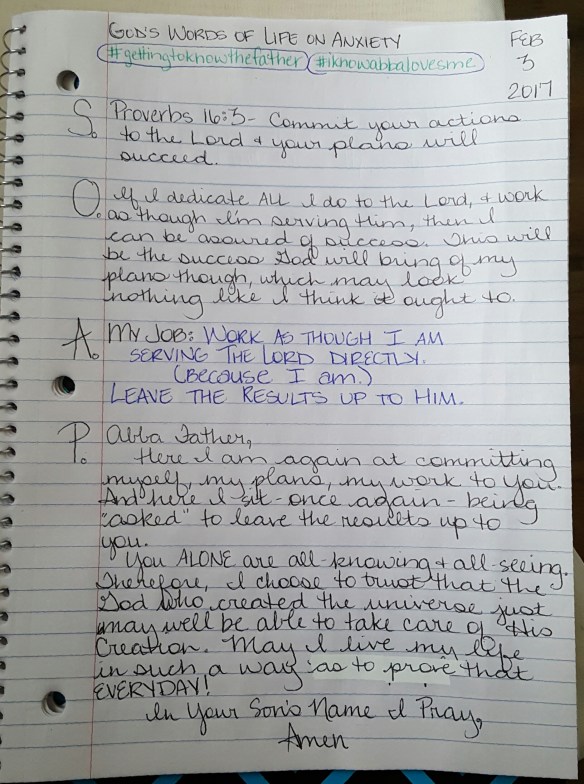 God's Words of Life on Anxiety
#gettingtoknowthefather #iknowabbalovesme
Feb
3
2017
S. Proverbs 16:3 - Commit your actions
to the Lord + your plans will
succeed.
O. If I dedicate ALL I do to the Lord, + work
as though I'm serving Him, then I
can be assured of success. This will
be the success God will bring of my
plans though, which may look
nothing like I think it ought to.
A. My Job: Work as though I am
serving the Lord directly.
(Because I am.)
Leave the results up to Him.
P. Abba Father,
Here I am again at committing
myself, my plans, my work to you.
And here I sit - once again - being
"asked" to leave the results up to
you.
You ALONE are all-knowing + all-seeing.
Therefore, I choose to trust that the
God who created the universe just
may well be able to take care of His
Creation. May I live my life
in such a way as to prove that
EVERYDAY!
In Your Son's Name I Pray,
Amen